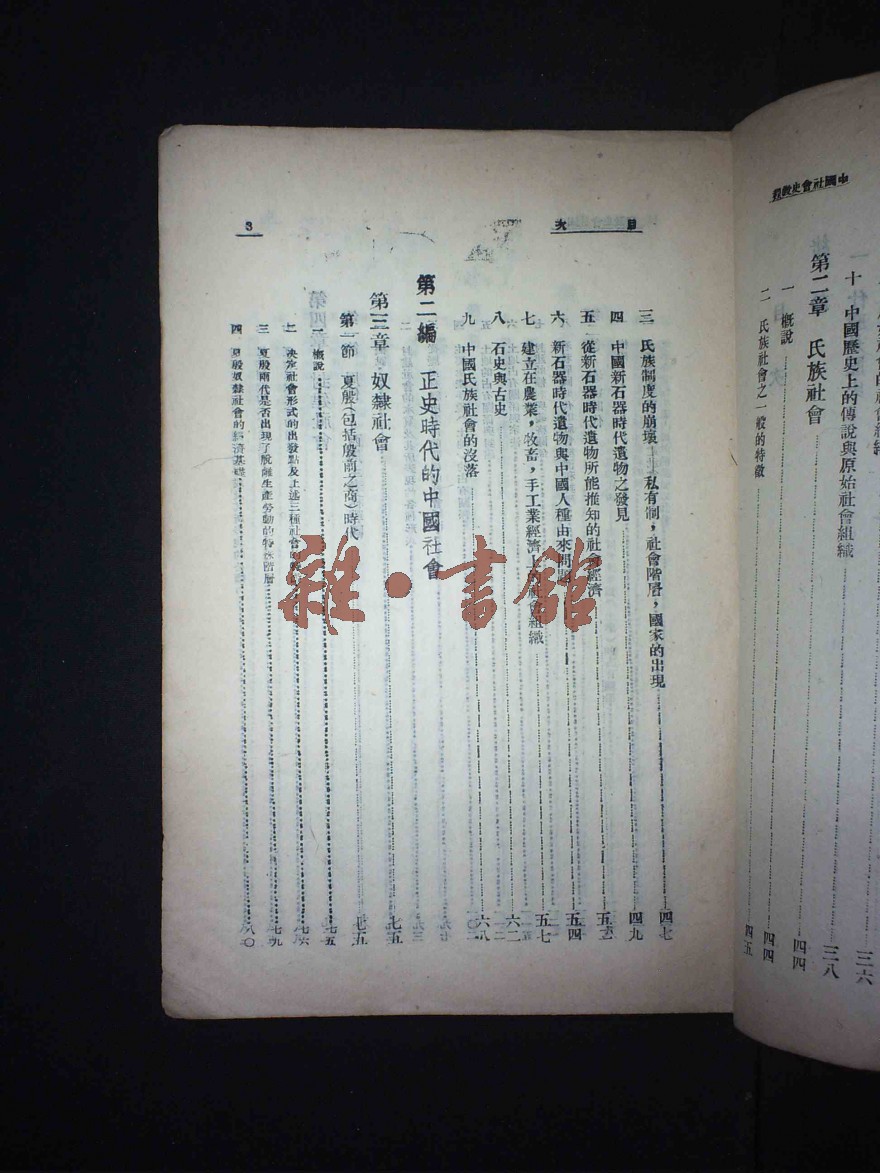 中國社會史教程
一十 中國歷史上的傳說與原始社會組織 三六
第二章 氏族社會 三八
一 概說 四四
二 氏族社會之一般的特徵 四五
目次 3
三 氏族制度的崩壞——私有制,社會階層,國家的出現 四七
四 中國新石器時代遺物之發見 四九
五 從新石器時代遺物所能推知的社會經濟
六 新石器時代遺物與中國人種由來問題 五四
七 建立在農業,牧畜,手工業經濟上的社會組織 五七
八 石史與古史 六二
九 中國氏族社會的沒落 六八
第二編 正史時代的中國社會
第三章 奴隸社會 七五
第一節 夏殷(包括殷前之商)時代 七五
一 概說 七五
二 決定社會形式的出發點及上述三種社會的 七六
三 夏殷兩代是否出現了脫離生產勞動的特殊階層 七九
四 夏殷奴隸社會的經濟基礎 八〇
雜·書館